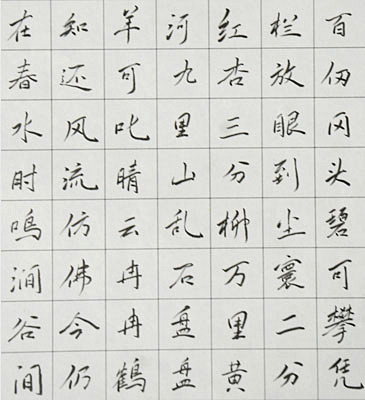 百仞冈头碧可攀凭
栏放眼到尘寰二分
红杏三分柳万里黄
河九里山乱石盘盘
羊可叱晴云冉冉鹤
知还风流仿佛今仍
在春水时鸣涧谷间